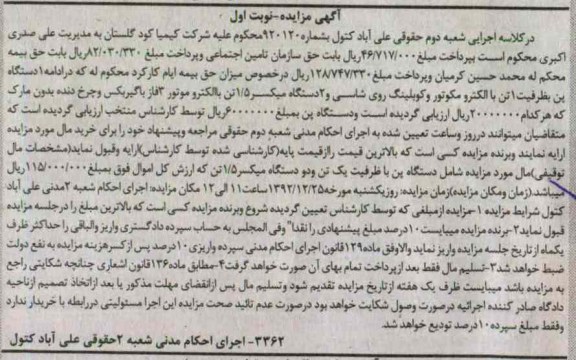 آگهی مزایده-نوبت اول
درکلاسه اجرایی شعبه دوم حقوقی علی آباد کتول بشماره۹۲۰۱۲۰محکوم علیه شرکت کیمیا کود گلستان به مدیریت علی صدری
اکبری محکوم است بپرداخت مبلغ۴۶/۷۱۷/۰۰۰ریال بابت حق سازمان تامین اجتماعی وپرداخت مبلغ ۸۲/۰۳۰/۳۲۰ریال بابت حق بیمه
محکم له محمد حسین کرمیان وپرداخت مبلغ۱۲۸/۷۴۷/۳۳۰ریال درخصوص میزان حق بیمه ایام کارکرد محکوم له که درادامه۱دستگاه
پن بظرفیت۱تن با الکترو مکوتور وکوپلینگ روی شاسی و۲دستگاه میکسر۱/۵تن باالکترو موتور ۳فاز باگیربکس وچرخ دنده بدون مارک
که هرکدام۲۰۰۰۰۰۰۰ریال ارزیابی گردیده است ودستگاه پن بمبلغ۶۰۰۰۰۰۰۰ریال توسط کارشناس منتخب ارزیابی گردیده است که
متقاضیان میتوانند درروز وساعت تعیین شده به اجرای احکام مدنی شعبه دوم حقوقی مراجعه وپیشنهاد خود را برای خرید مال مورد مزایده
ارایه نمایند وبرنده مزایده کسی است که بالاترین قیمت رازقیمت پایه(کارشناسی شده توسط کارشناس)ارایه وقبول نماید(مشخصات مال
توقیفی)مال مورد مزایده شامل دستگاه پن با ظرفیت یک تن ودو دستگاه میکسر۱/۵تن که ارزش کل اموال فوق بمبلغ۱۱۵/۰۰۰/۰۰۰ریال
میباشد.(زمان ومکان مزایده)زمان مزایده: روزیکشنبه مورخه۱۳۹۲/۱۲/۲۵ساعت۱۱الی۱۲ مکان مزایده: اجرای احکام شعبه ۲مدنی علی آباد
کتول شرایط مزایده ۱-مزایده ازمبلغی که توسط کارشناس تعیین گردیده شروع وبرنده مزایده کسی است که بالاترین مبلغ را درجلسه مزایده
قبول نماید۲-برنده مزایده میبایست۱۰درصد مبلغ پیشنهادی را نقدا" وفی المجلس به حساب سپرده دادگستری واریز والباقی را حداکثر ظرف
یکماه از تاریخ جلسه مزایده واریز نماید والاوفق ماده۱۲۹قانون اجرای احکام مدنی سپرده واریزی ۱۰درصد پس ازکسرهزینه مزایده به نفع دولت
ضبط خواهد شد۳-تسلیم مال فقط بعد ازپرداخت تمام بهای آن صورت خواهد گرفت۴-مطابق ماده۱۳۶قانون اشعاری چنانچه شکایتی راجع
به مزایده باشد میبایست ظرف یک هفته از تاریخ مزایده تقدیم شود وتسلیم مال پس ازانقضای مهلت مذکور یا بعد ازاتخاذ تصمیم ازناحیه
دادگاه صادر کننده اجرائیه درصورت وصول شکایت خواهد بود درصورت عدم تائید صحت مزایده این اجرا مسئولیتی دررابطه با خریدار ندارد
وفقط مبلغ سپرده۱۰درصد تودیع خواهد شد.
۳۳۶۲- اجرای احکام مدنی شعبه ۲حقوقی علی آباد کتول